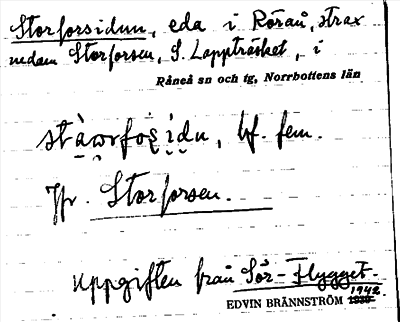 Storforsidun, eda i Råran, strax
nedan Storforsen, S. Lappträsket, i
Råneå sn och tg, Norrbottens län
bf. fem.
Jfr. Storforsen.
Uppgiften från Sör-Flygget.
EDVIN BRÄNNSTRÖM 1942